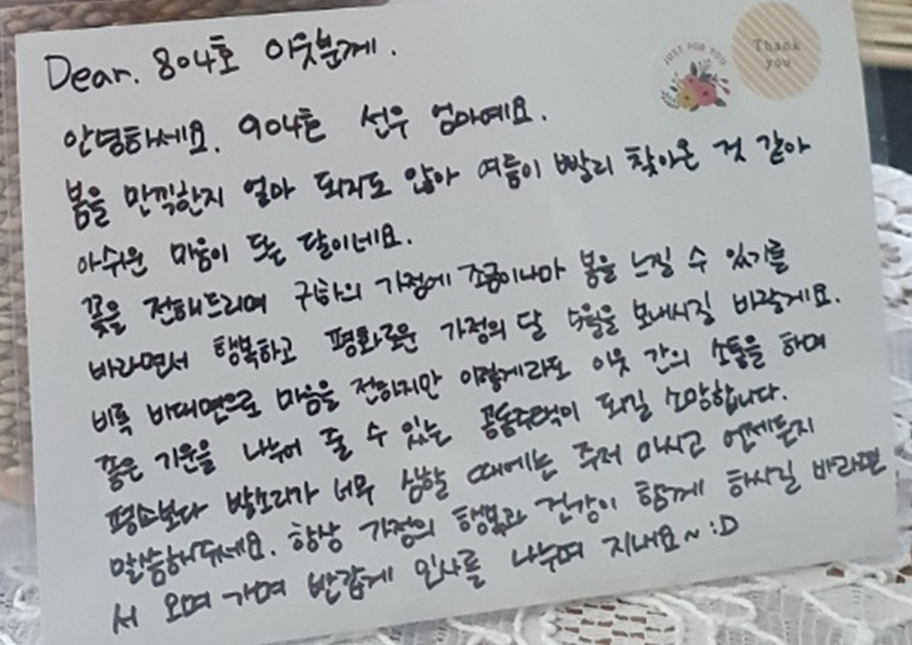 Dear. 804호 이웃분께.
JUST FOR YOU
Thank
you
안녕하세요. 904호 선우 엄마예요.
봄을 만끽한지 얼마 되지도 않아 여름이 빨리 찾아온 것 같아
아쉬운 마음이 드는 달이네요.
꽃을 전해드리며 귀하의 가정에 조금이나마 봄을 느낄 수 있기를
바라면서 행복하고 평화로운 가정의 달 5월을 보내시길 바랄게요.
비록 비대면으로 마음을 전하지만 이렇게라도 이웃 간의 소통을 하며
좋은 기운을 나누어 줄 수 있는 공동주택이 되길 소망합니다.
평소보다 발소리가 너무 심할 때에는 주저 마시고 언제든지
말씀해주세요. 항상 가정의 행복과 건강이 함께 하시길 바라면
서 오며 가며 반갑게 인사를 나누며 지내요~ :D